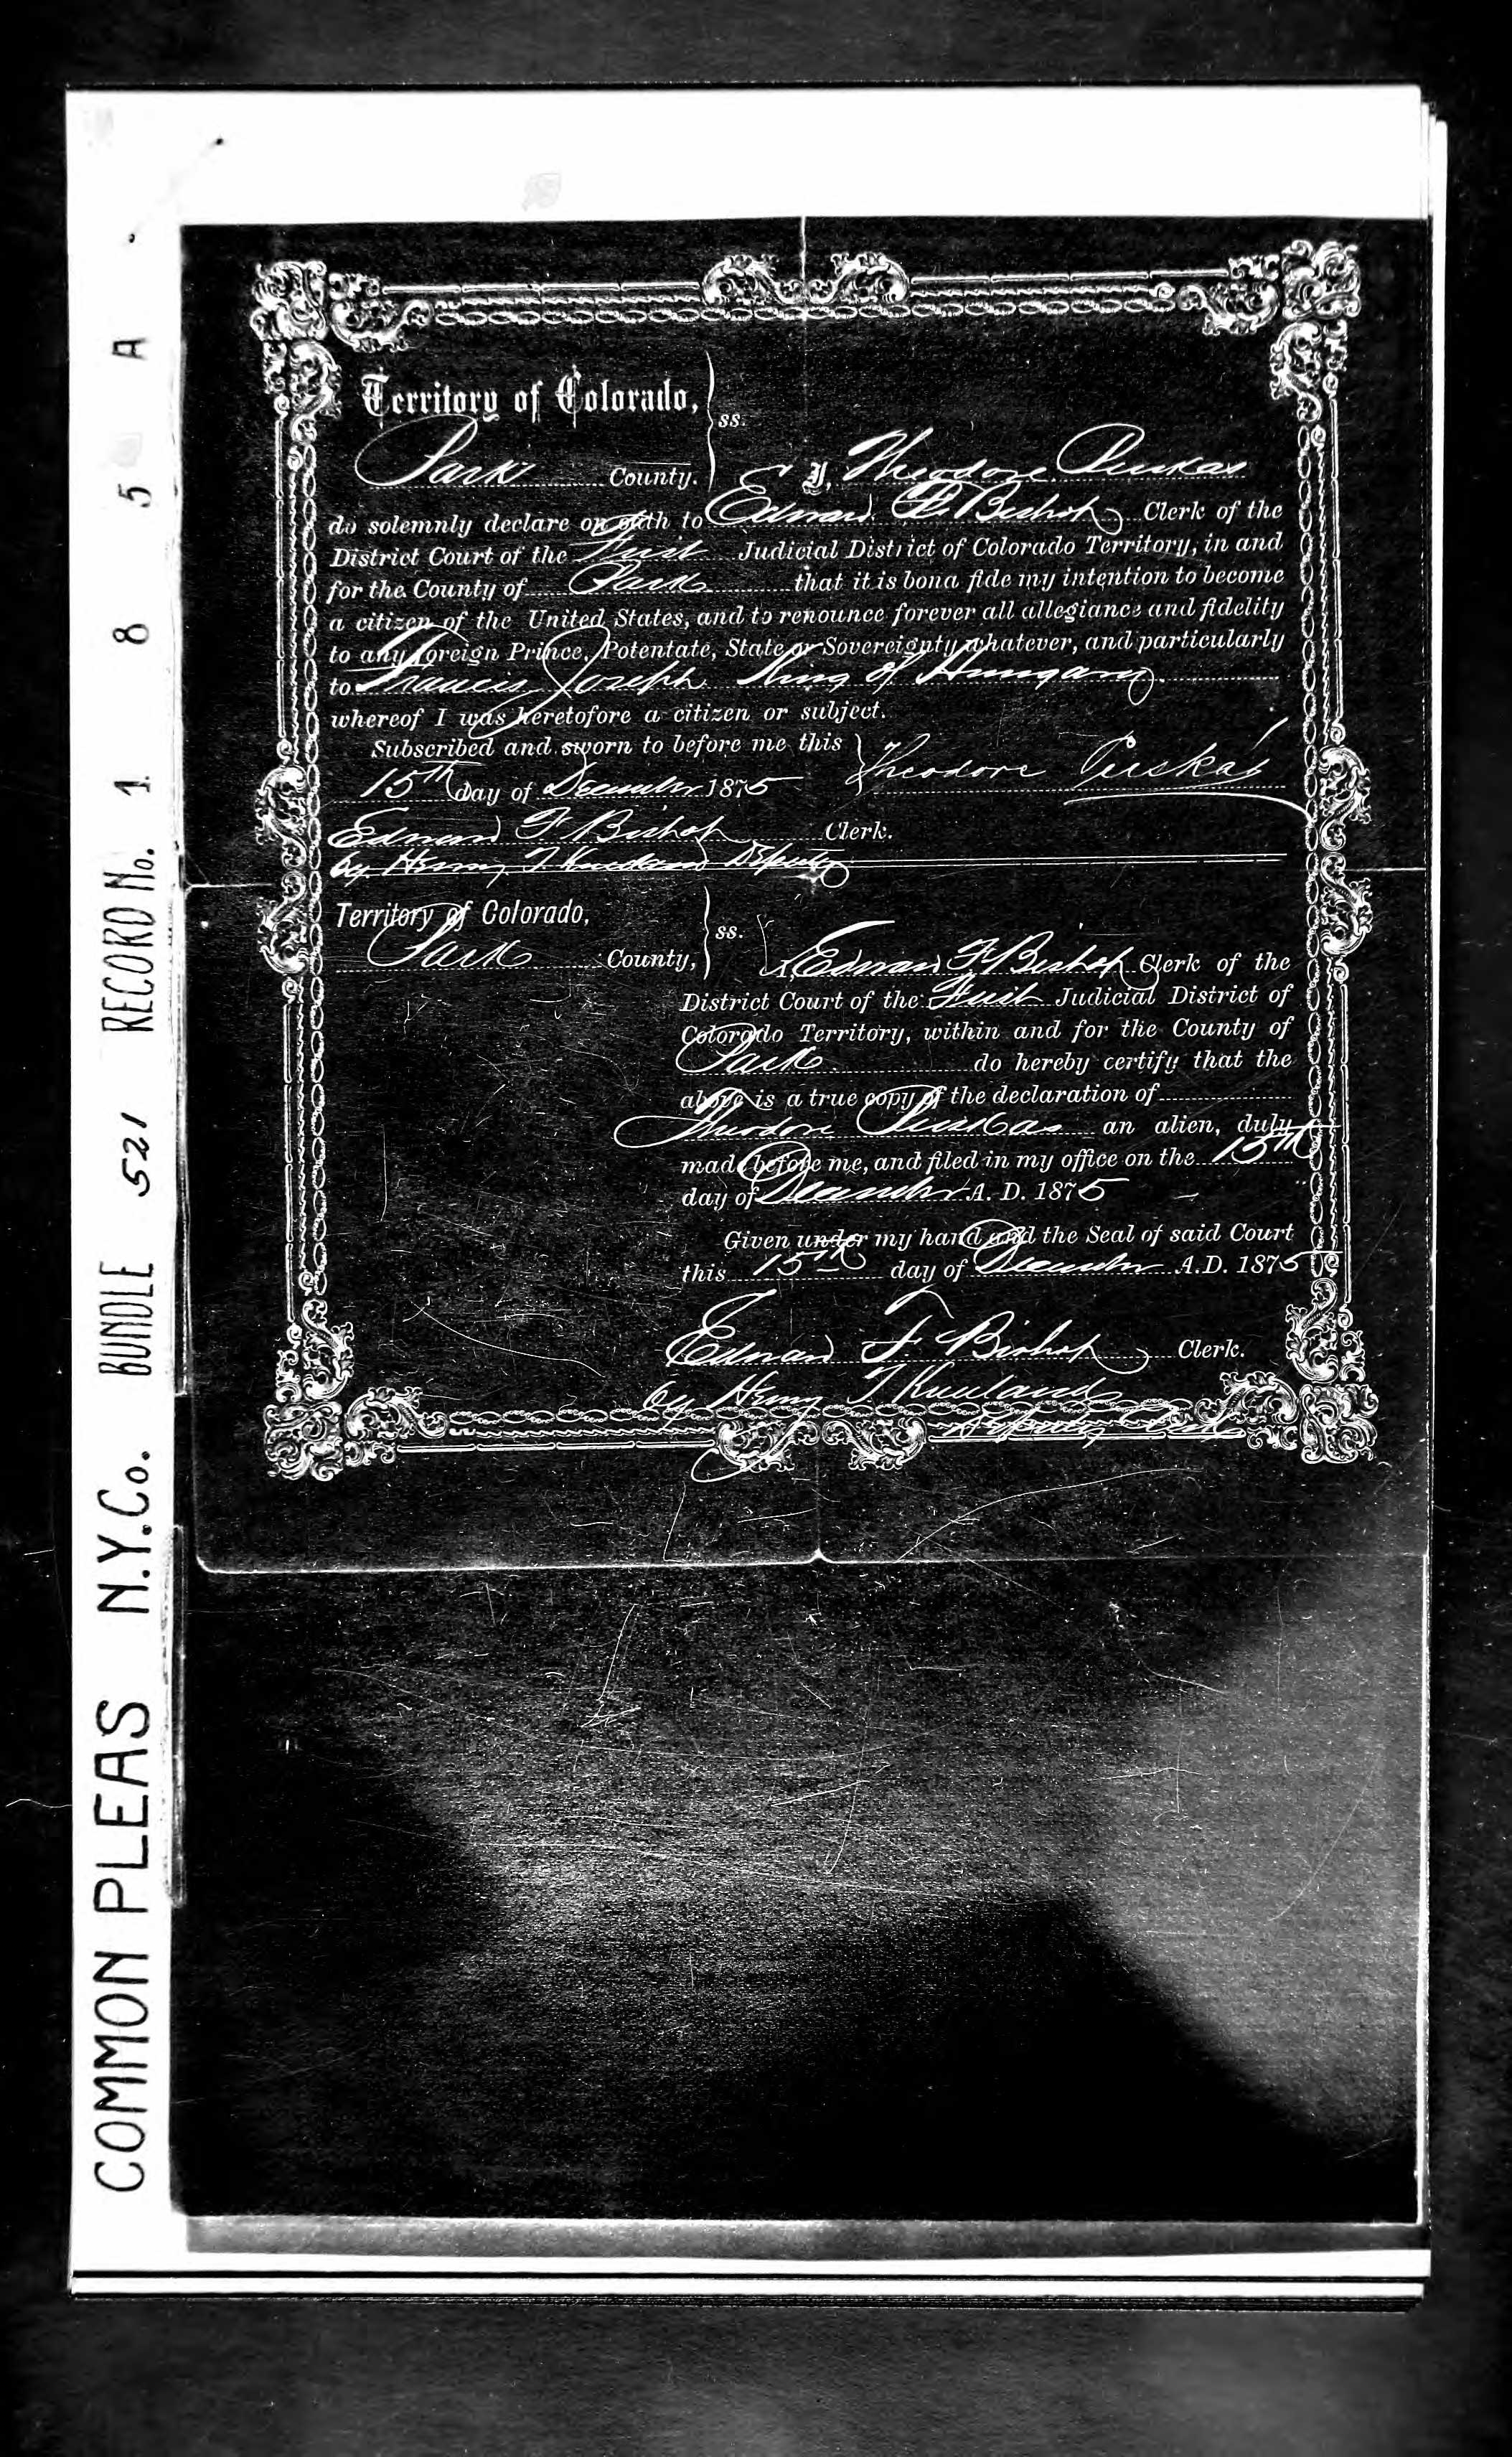 COMMON PLEAS N.Y.Co. BUNDLE 521 RECORD No. 1 8 5 A
Territory of Colorado,
Park County. ss.
I, Theodore Puskas
do solemnly declare on oath to Edward F. Bishop Clerk of the
District Court of the First Judicial District of Colorado Territory, in and
for the County of Park that it is bona fide my intention to become
a citizen of the United States, and to renounce forever all allegiance and fidelity
to any foreign Prince, Potentate, State or Sovereignty whatever, and particularly
to Francis Joseph King of Hungary
whereof I was heretofore a citizen or subject.
Subscribed and sworn to before me this
15th day of December 1875 Theodore Puskás
Edward F. Bishop Clerk.
by Henry T. Deputy
Territory of Colorado,
Park County, ss.
I, Edward F Bishop Clerk of the
District Court of the First Judicial District of
Colorado Territory, within and for the County of
Park do hereby certify that the
above is a true copy of the declaration of
Theodore Puskas an alien, duly
made before me, and filed in my office on the 15th
day of December A. D. 1875
Given under my hand and the Seal of said Court
this 15th day of December A.D. 1875
Edward F Bishop Clerk.
by Henry T
Deputy Clerk